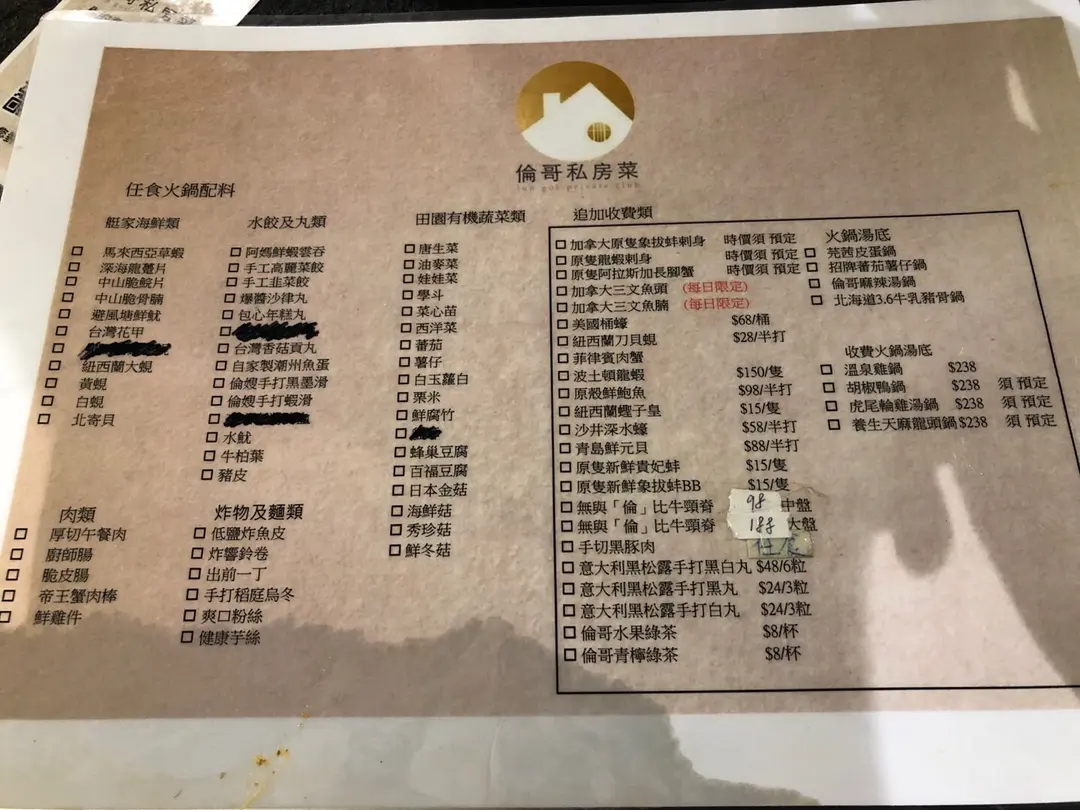 倫哥私房菜
lun gor private club
任食火鍋配料
艇家海鮮類
馬來西亞草蝦
深海龍躉片
中山脆鯇片
中山脆骨腩
避風塘鮮魷
台灣花甲
紐西蘭大蜆
黃蜆
白蜆
北寄貝
水餃及丸類
阿媽鮮蝦雲吞
手工高麗菜餃
手工韭菜餃
爆醬沙律丸
包心年糕丸
台灣香菇貢丸
自家製潮州魚蛋
倫嫂手打黑墨滑
倫嫂手打蝦滑
水魷
牛柏葉
豬皮
田園有機蔬菜類
唐生菜
油麥菜
娃娃菜
學斗
菜心苗
西洋菜
蕃茄
薯仔
白玉蘿白
栗米
鮮腐竹
蜂巢豆腐
百福豆腐
日本金菇
海鮮菇
秀珍菇
鮮冬菇
肉類
厚切午餐肉
廚師腸
脆皮腸
帝王蟹肉棒
鮮雞件
炸物及麵類
低鹽炸魚皮
炸響鈴卷
出前一丁
手打稻庭烏冬
爽口粉絲
健康芋絲
追加收費類
加拿大原隻象拔蚌刺身 時價須 預定
原隻龍蝦刺身 時價須 預定
原隻阿拉斯加長腳蟹 時價須 預定
加拿大三文魚頭 (每日限定)
加拿大三文魚腩 (每日限定)
美國桶蠔 $68/桶
紐西蘭刀貝蜆 $28/半打
菲律賓肉蟹
波士頓龍蝦 $150/隻
原殼鮮鮑魚 $98/半打
紐西蘭蟶子皇 $15/隻
沙井深水蠔 $58/半打
青島鮮元貝 $88/半打
原隻新鮮貴妃蚌 $15/隻
原隻新鮮象拔蚌BB $15/隻
無與「倫」比牛頸脊 98 中盤
無與「倫」比牛頸脊 188 大盤
手切黑豚肉 任食
意大利黑松露手打黑白丸 $48/6粒
意大利黑松露手打黑丸 $24/3粒
意大利黑松露手打白丸 $24/3粒
倫哥水果綠茶 $8/杯
倫哥青檸綠茶 $8/杯
火鍋湯底
芫茜皮蛋鍋
招牌蕃茄薯仔鍋
倫哥麻辣湯鍋
北海道3.6牛乳豬骨鍋
收費火鍋湯底
溫泉雞鍋 $238
胡椒鴨鍋 $238 須 預定
虎尾輪雞湯鍋 $238 須 預定
養生天麻龍頭鍋 $238 須 預定